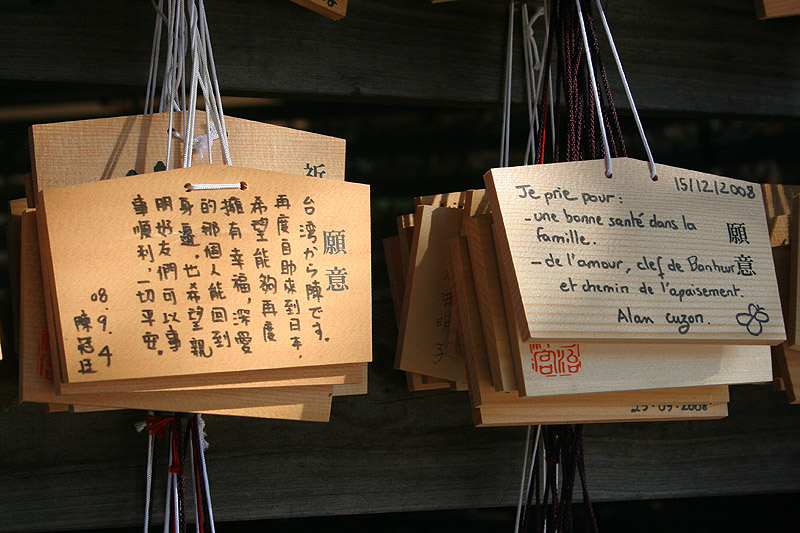 祈
願意
台湾から陳です。
再度自助來到日本,
希望能夠再度
擁有幸福,深愛
的那個人能回到
身邊,也希望親
朋好友們可以事
事順利,一切平安。
08.9.4
Je prie pour :
15/12/2008
- une bonne santé dans la
famille.
- de l'amour, clef de Bonheur
et chemin de l'apaisement.
Alan cuzon.
願意
25-09-2008